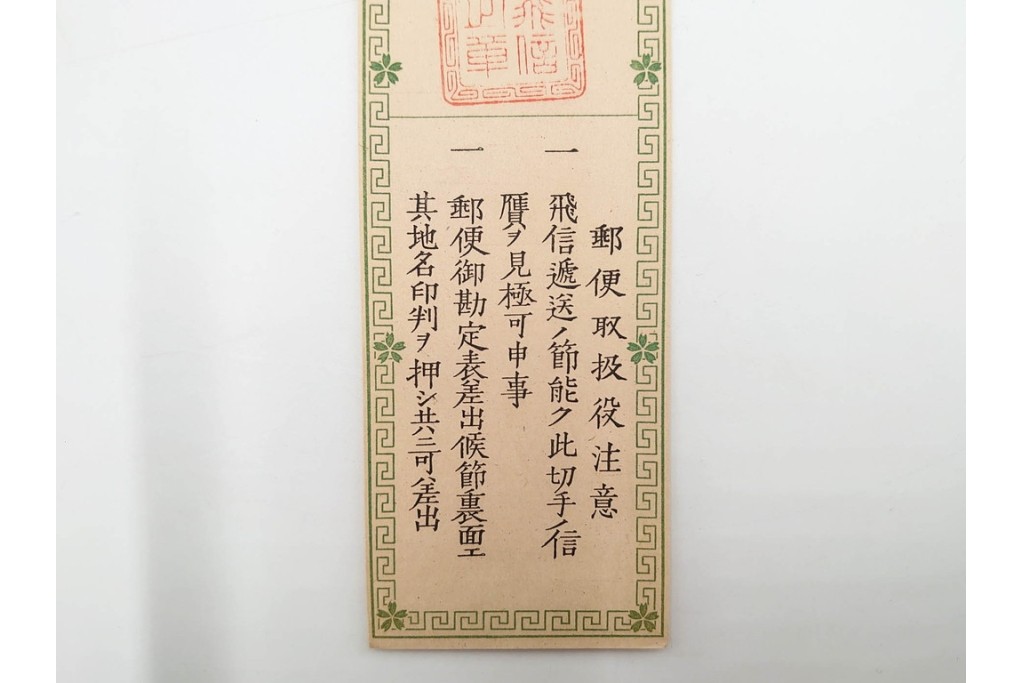 飛信
章
郵便取扱役注意
一 飛信遞送ノ節能ク此切手ノ信
贋ヲ見極可申事
一 郵便御勘定表差出候節裏面エ
其地名印判ヲ押シ共三可差出